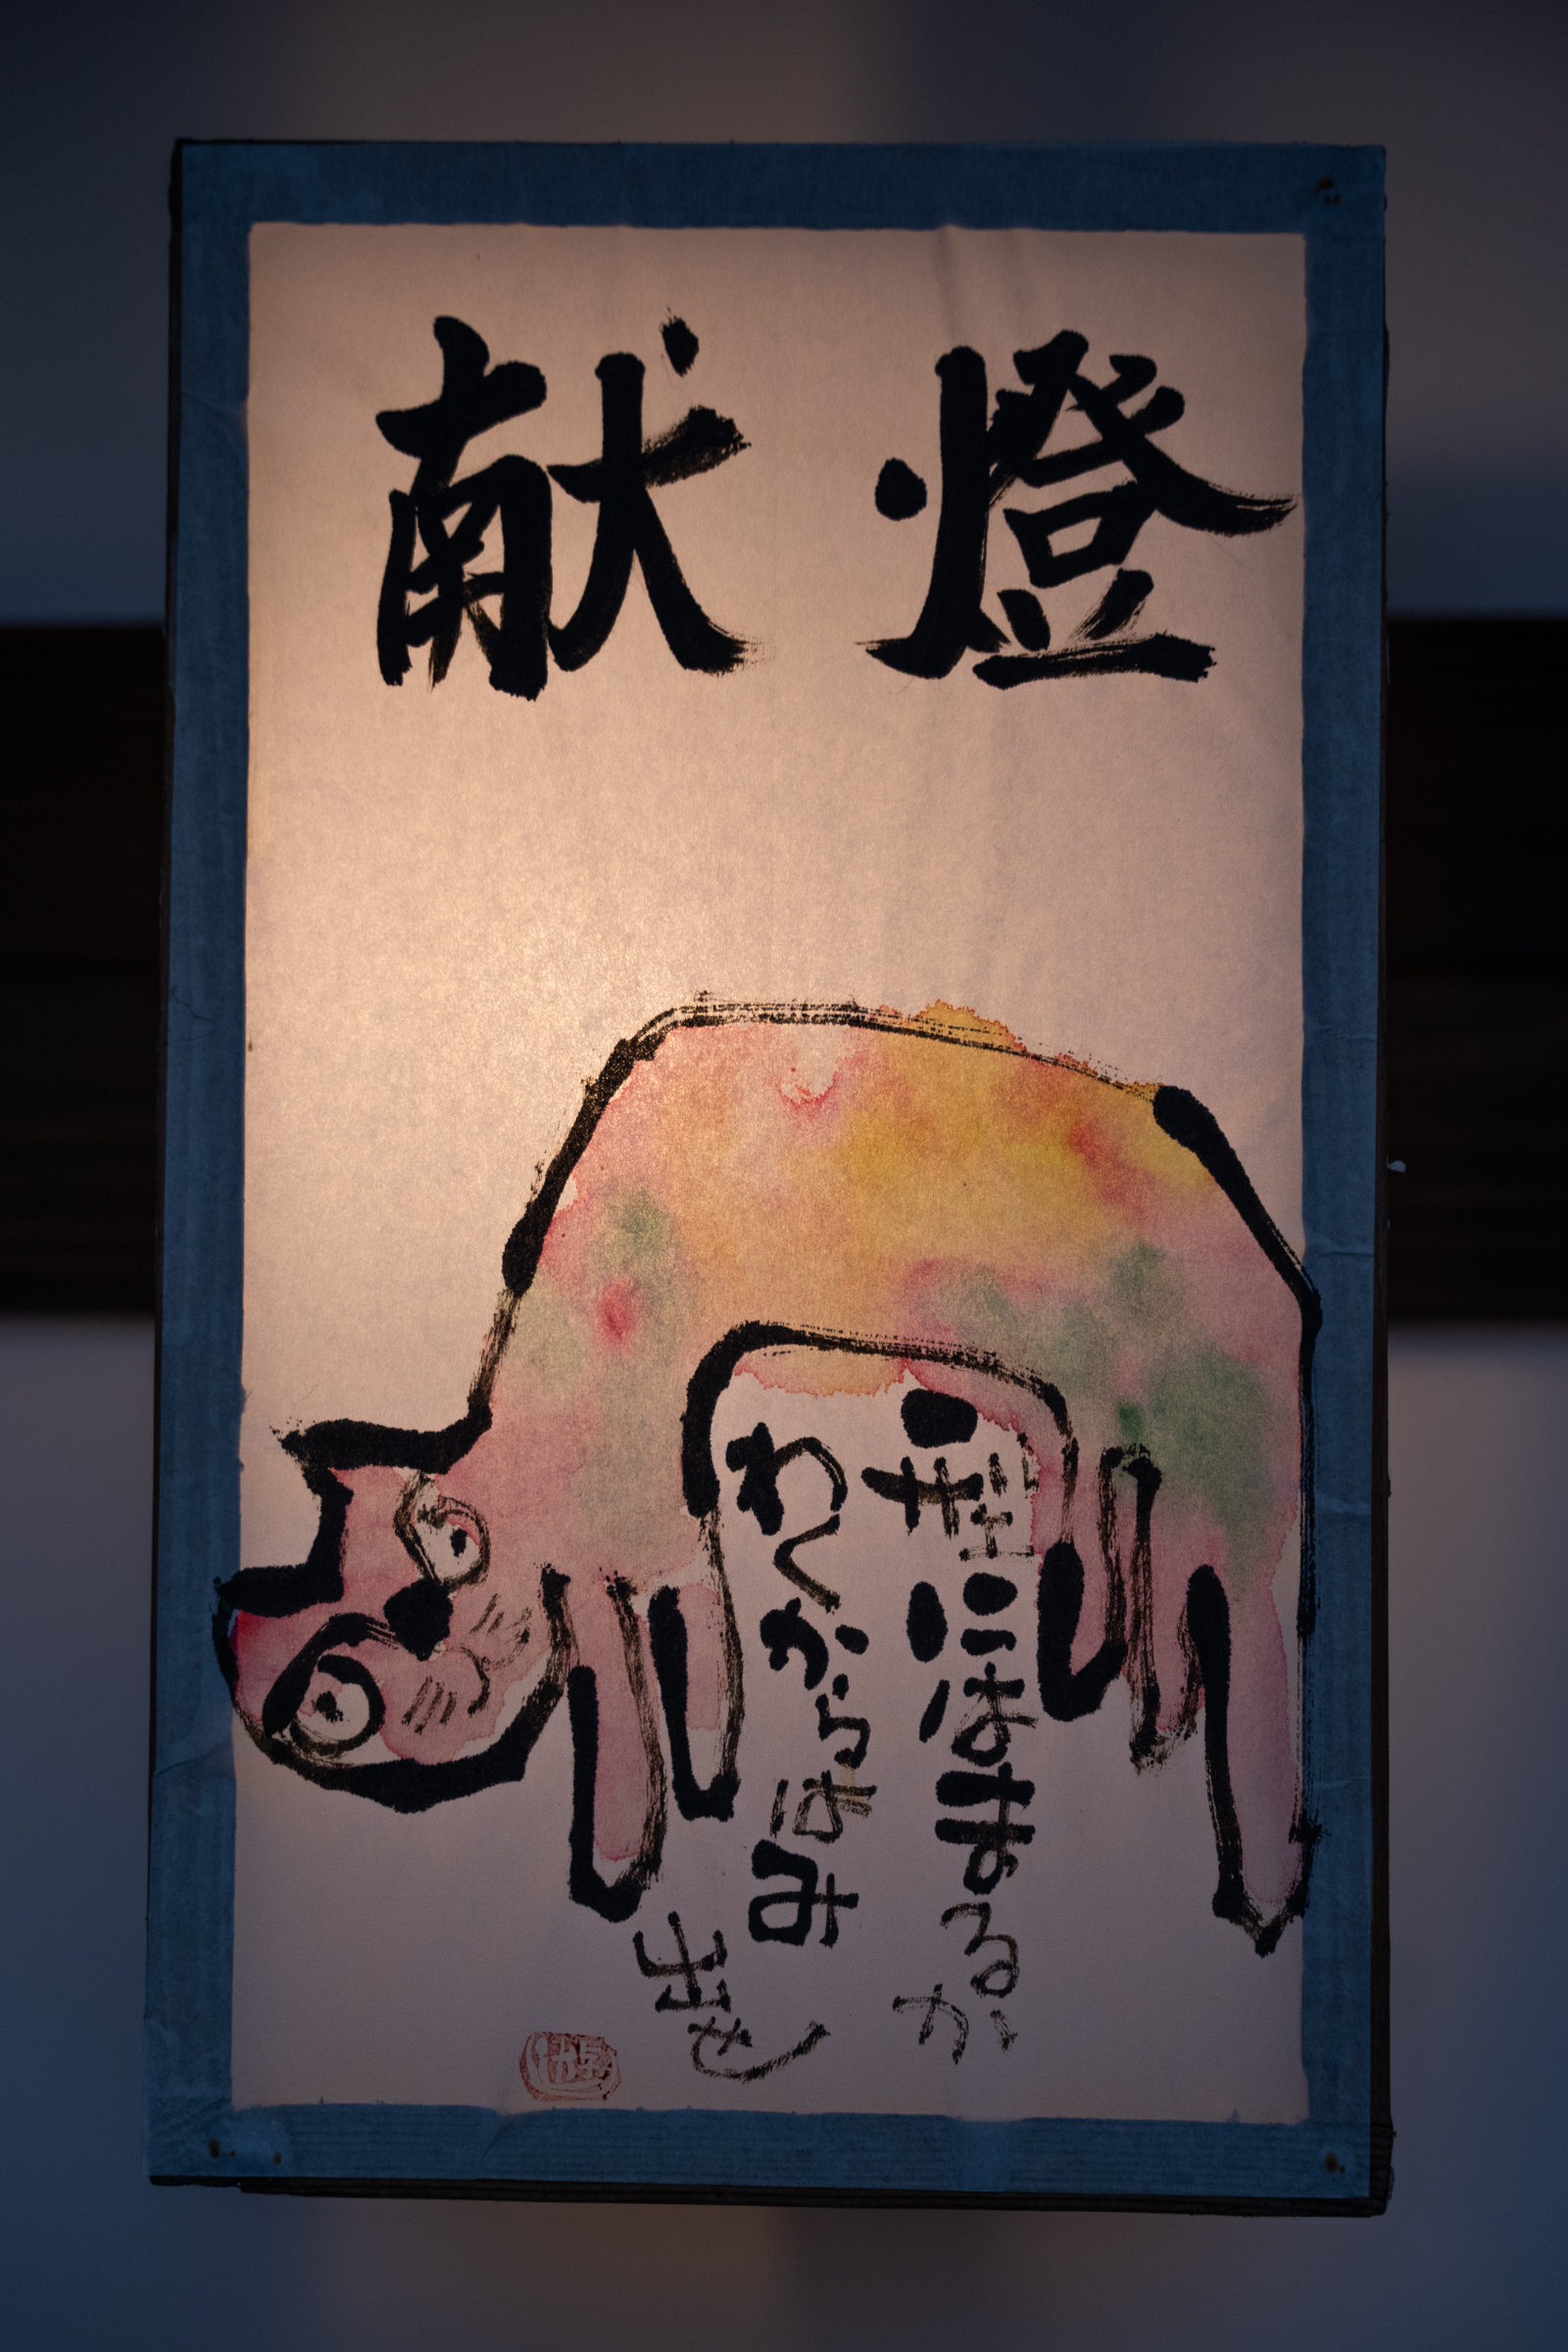 献燈
型にはまるか
わくからはみ
出せ